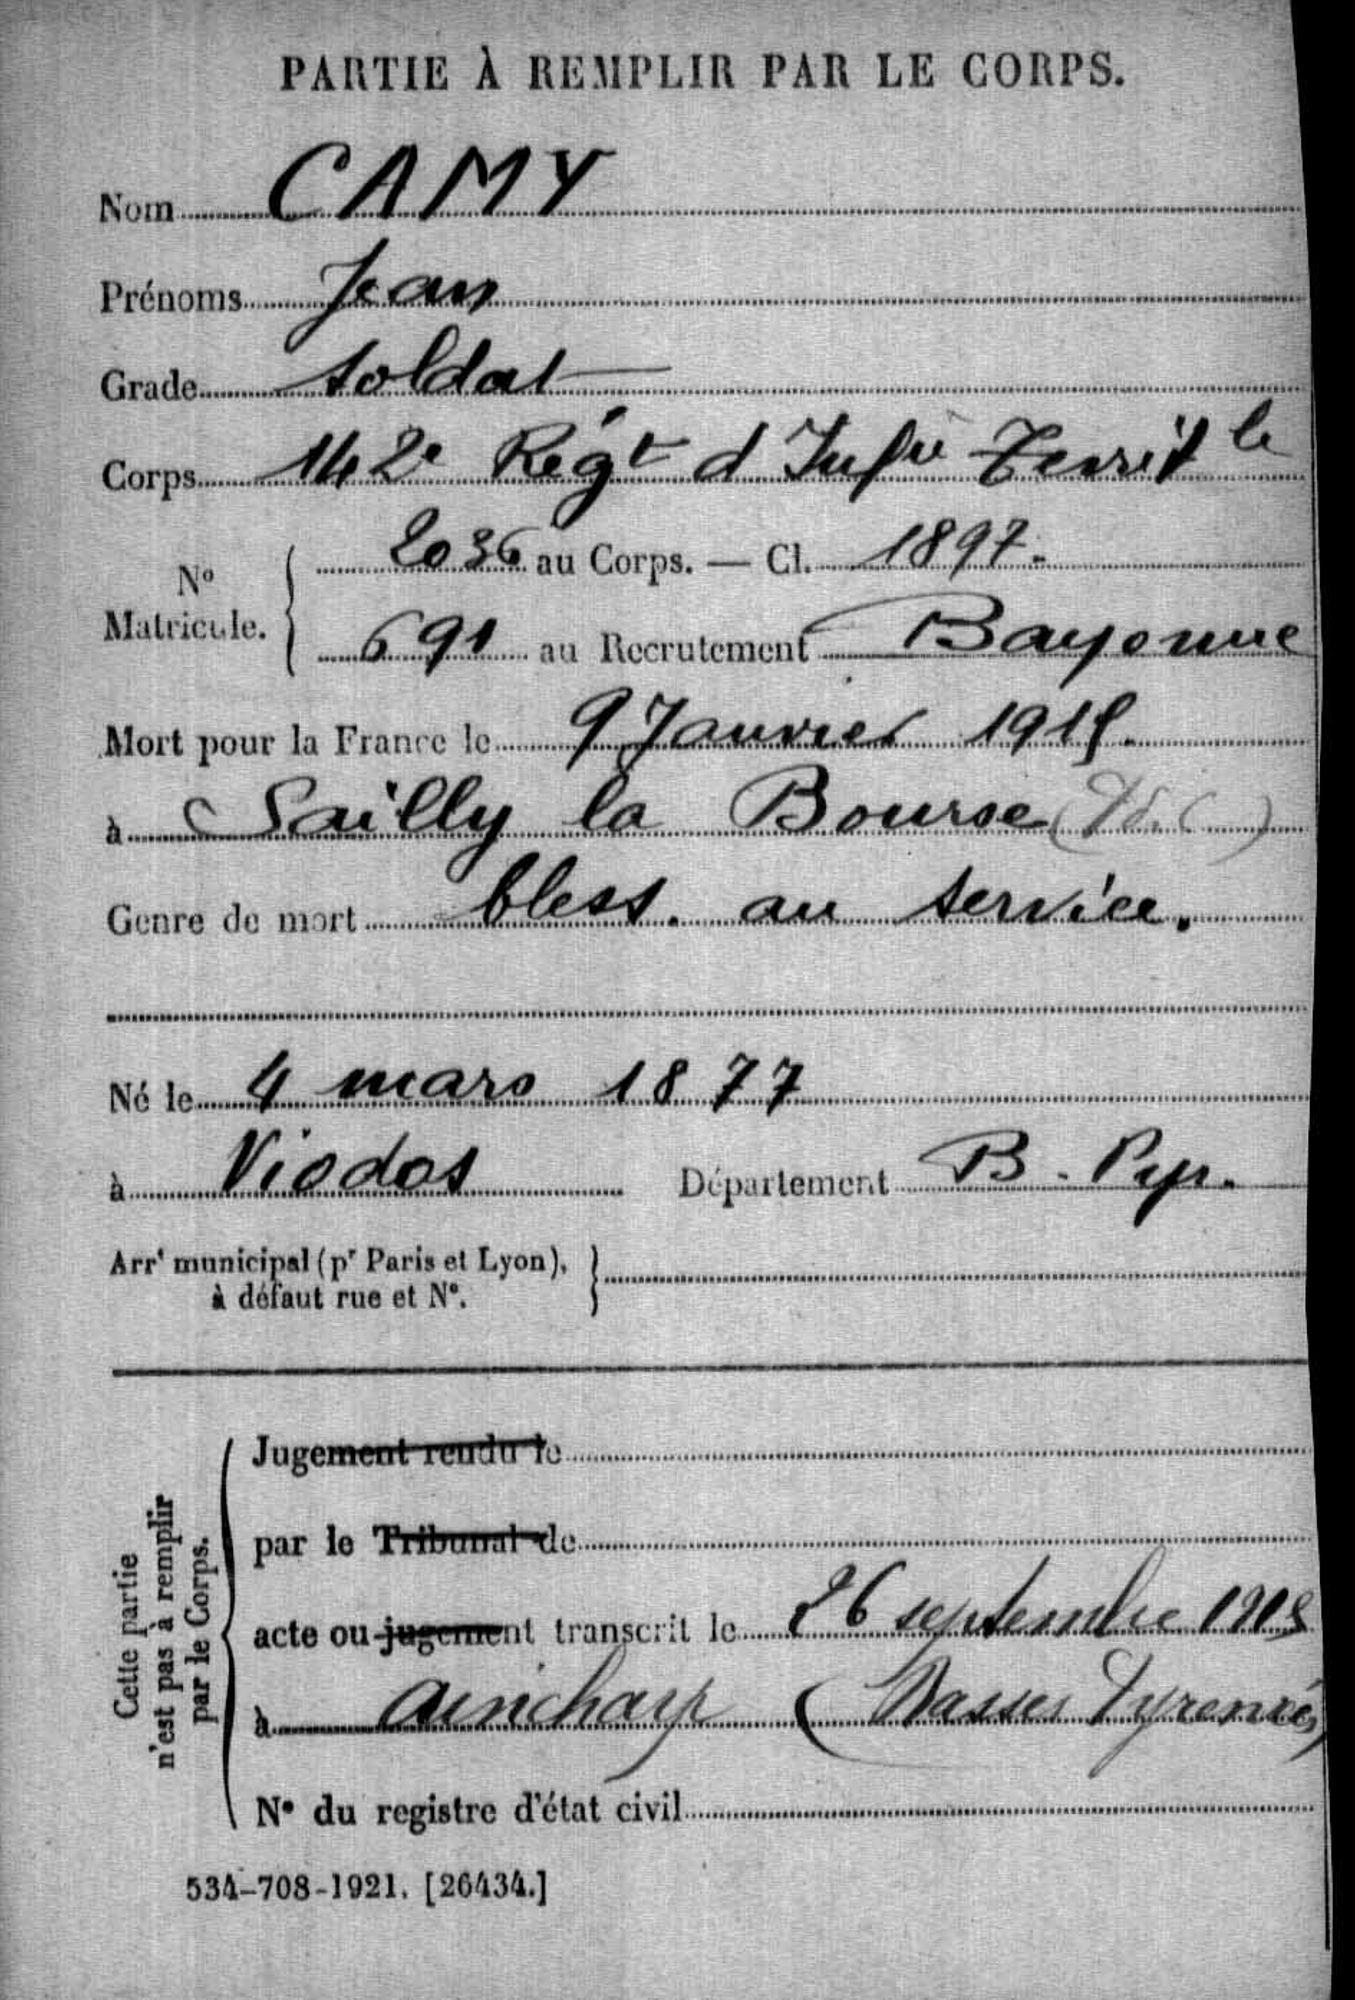 PARTIE À REMPLIR PAR LE CORPS.
Nom CAMY
Prénoms Jean
Grade Soldat
Corps 142e Régt d'Infie Territle
No Matricule. 2036 au Corps. — Cl. 1897.
691 au Recrutement Bayonne
Mort pour la France le 9 Janvier 1915.
à Sailly la Bourse (P.d.C)
Genre de mort bless. au service.
Né le 4 mars 1877
à Viodos Département B. Pyr.
Arrt municipal (pr Paris et Lyon),
à défaut rue et N°.
Cette partie
n'est pas à remplir
par le Corps.
Jugement rendu le
par le Tribunal de
acte ou jugement transcrit le 26 septembre 1915
à Aincharp (Basses Pyrenées)
N° du registre d'état civil
534-708-1921. [26434.]